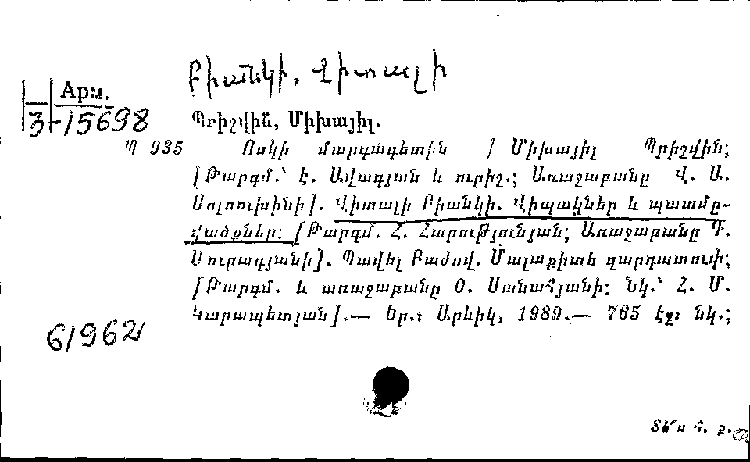 Բիանկի, Վիտալի
Арм.
3-15698
Պրիշվին, Միխայիլ.
Պ 935 Ոսկի մարգագետին / Միխայիլ Պրիշվին;
[Թարգմ.՝ է. Ավագյան և ուրիշ.; Առաջաբանը Վ. Ա.
Սոլոուխինի]. Վիտալի Բիանկի. Վիպակներ և պատմը-
վածքներ: [Թարգմ. Հ. Հարությունյան; Առաջաբանը Գ.
Սուրազյանի]. Պավել Բաժով. Մալաքիտե զարդատուփ;
[Թարգմ. և առաջաբանը Օ. Սանահյանի: Նկ.՝ Հ. Մ.
Կարապետյան].— Եր.: Արևիկ, 1989.— 765 էջ: նկ.;
61962
Տե՛ս հ. ք.